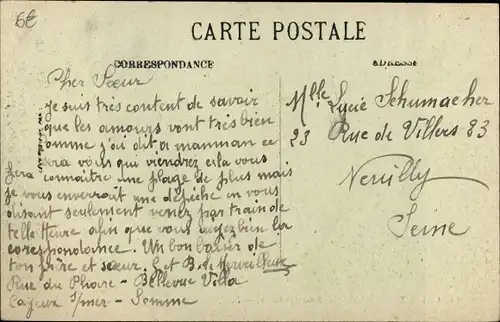 6€
CARTE POSTALE
CORRESPONDANCE
ADRESSE
Cher Sœur
Je suis très content de savoir
que les amours vont très bien
comme j'ai dit a manman ce
sera vous qui viendrez cela vous
fera connaître une plage de plus mais
je vous enverrait une dépêche en vous
disant seulement venez par train de
telle Heure afin que vous ayez bien la
corespondance. Un bon baiser de
ton frère et sœur. E et B.
Rue du Phare - Bellevue Villa
Cayeux s/mer - Somme
Mlle Lucie Schumacher
23 Rue de Villers 23
Neuilly
Seine